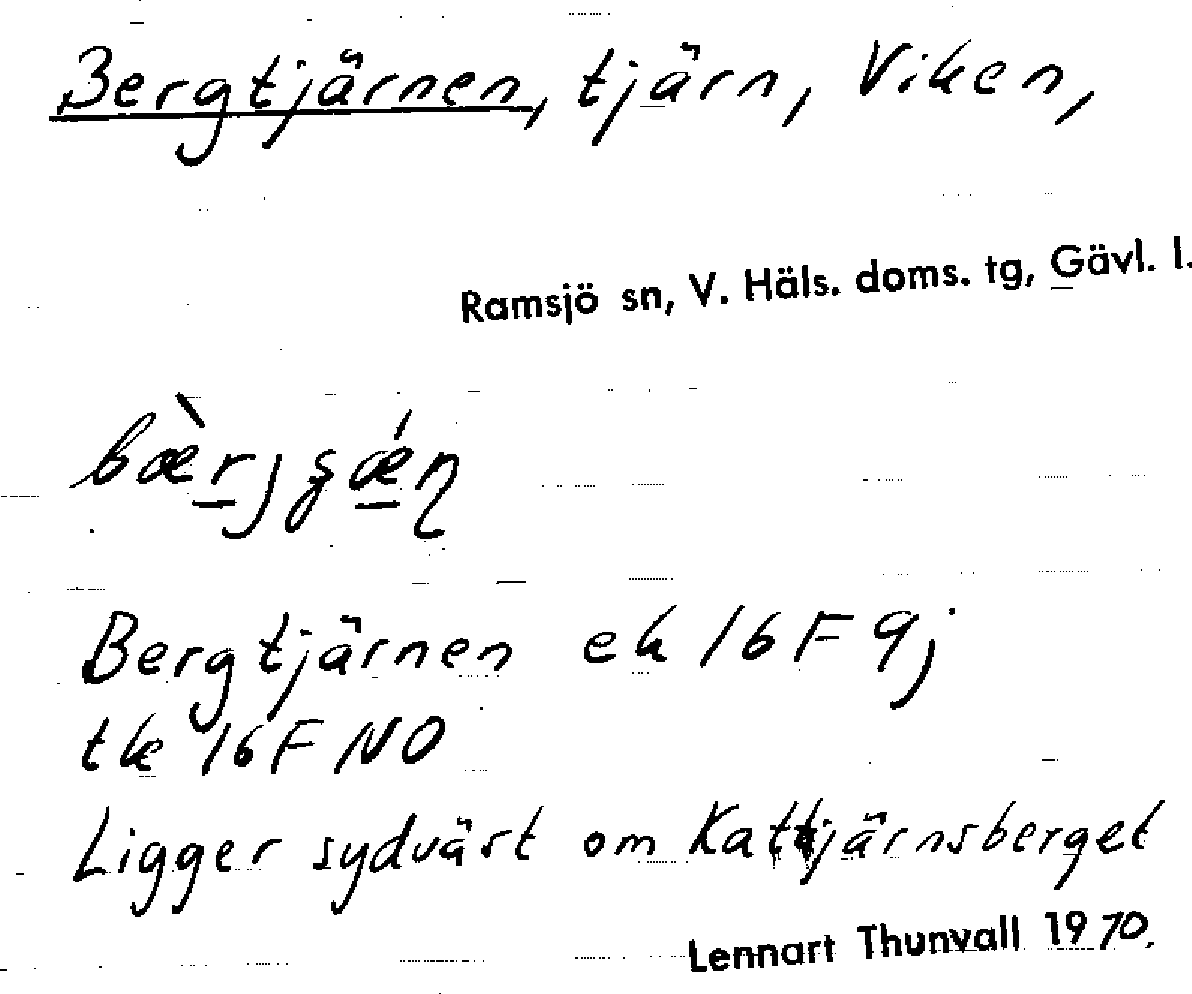 Bergtjärnen, tjärn, Viken,
Ramsjö sn, V. Häls. doms. tg, Gävl. l.
bæ̀rjʂǽɳ
Bergtjärnen ek 16 F 9j
tk 16 F NO
Ligger sydvärt om Kattjärnsberget
Lennart Thunvall 1970.